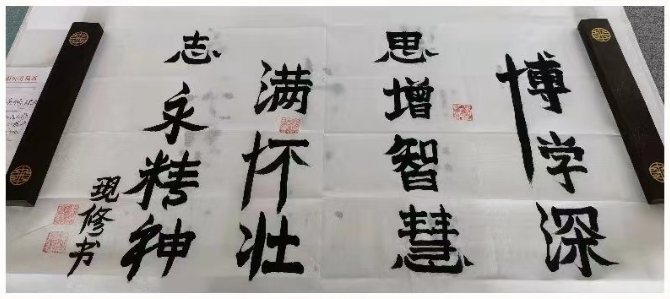 博学深
思增智慧
满怀壮
志永精神
现修书